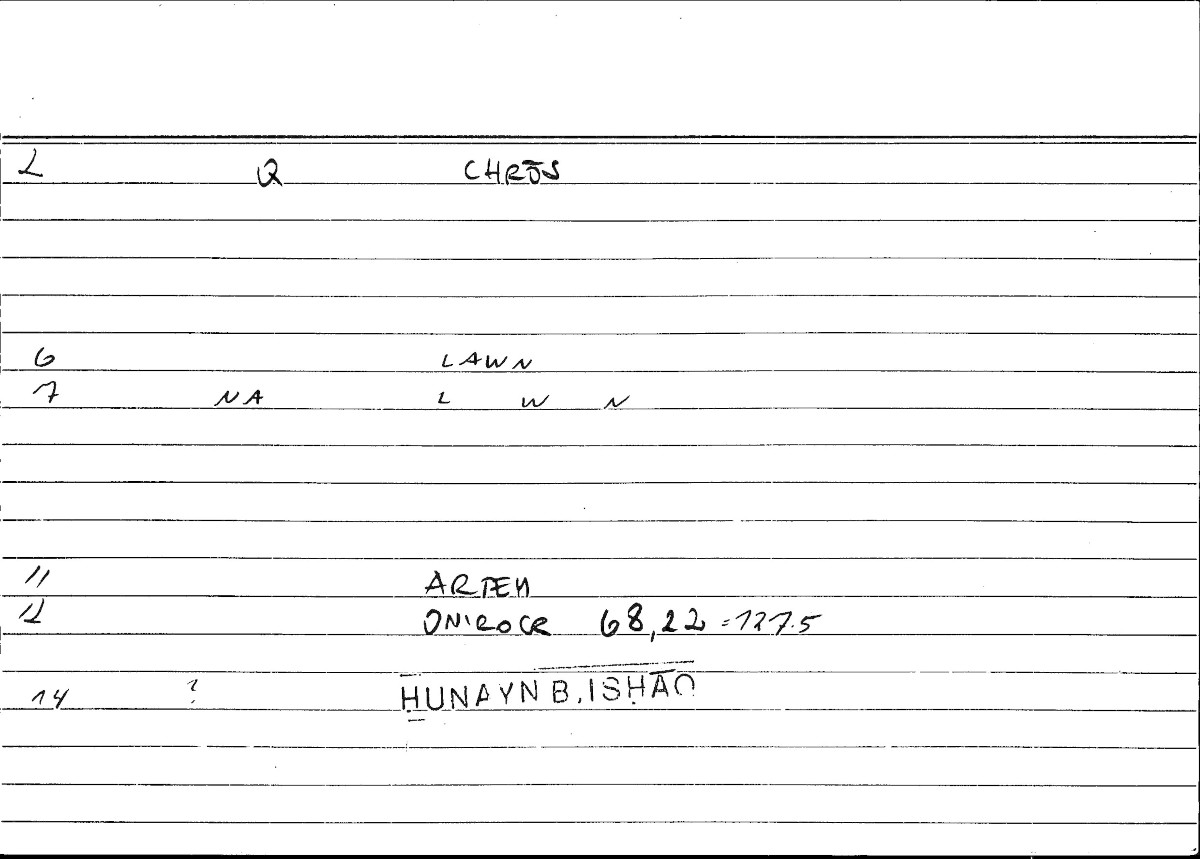 L Q CHRŌS
6 LAWN
7 NA L W N
11 ARTEM
12 ONIROCR 68,22 = 127.5
14 ? ḤUNAYN B. ISḤĀQ